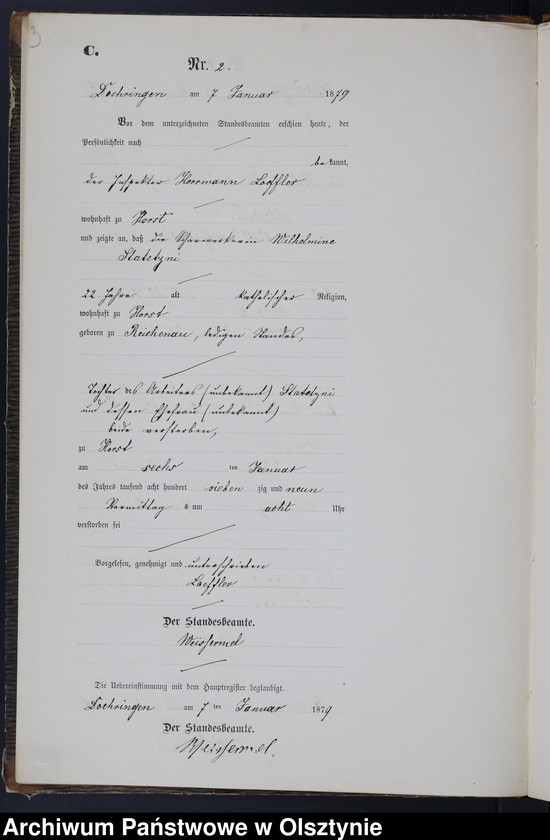 3
C.
Nr. 2.
Doehringen am 7 Januar 1879
Vor dem unterzeichneten Standesbeamten erschien heute, der
Persönlichkeit nach
bekannt,
der Inspektor Herrmann Loeffler
wohnhaft zu Horst
und zeigte an, daß die Scharwerkerin Wilhelmine
Statetzni
22 Jahre alt katholischer Religion,
wohnhaft zu Horst
geboren zu Reichenau, ledigen Standes,
Tochter des Arbeiters (unbekannt) Statetzni
und dessen Ehefrau (unbekannt)
beide verstorben,
zu Horst
am sechs ten Januar
des Jahres tausend acht hundert sieben zig und neun
Vormittag s um acht Uhr
verstorben sei
Vorgelesen, genehmigt und unterschrieben
Loeffler
Der Standesbeamte.
Weissermel
Die Uebereinstimmung mit dem Hauptregister beglaubigt.
Doehringen am 7 ten Januar 1879
Der Standesbeamte.
Weissermel.
Archiwum Państwowe w Olsztynie